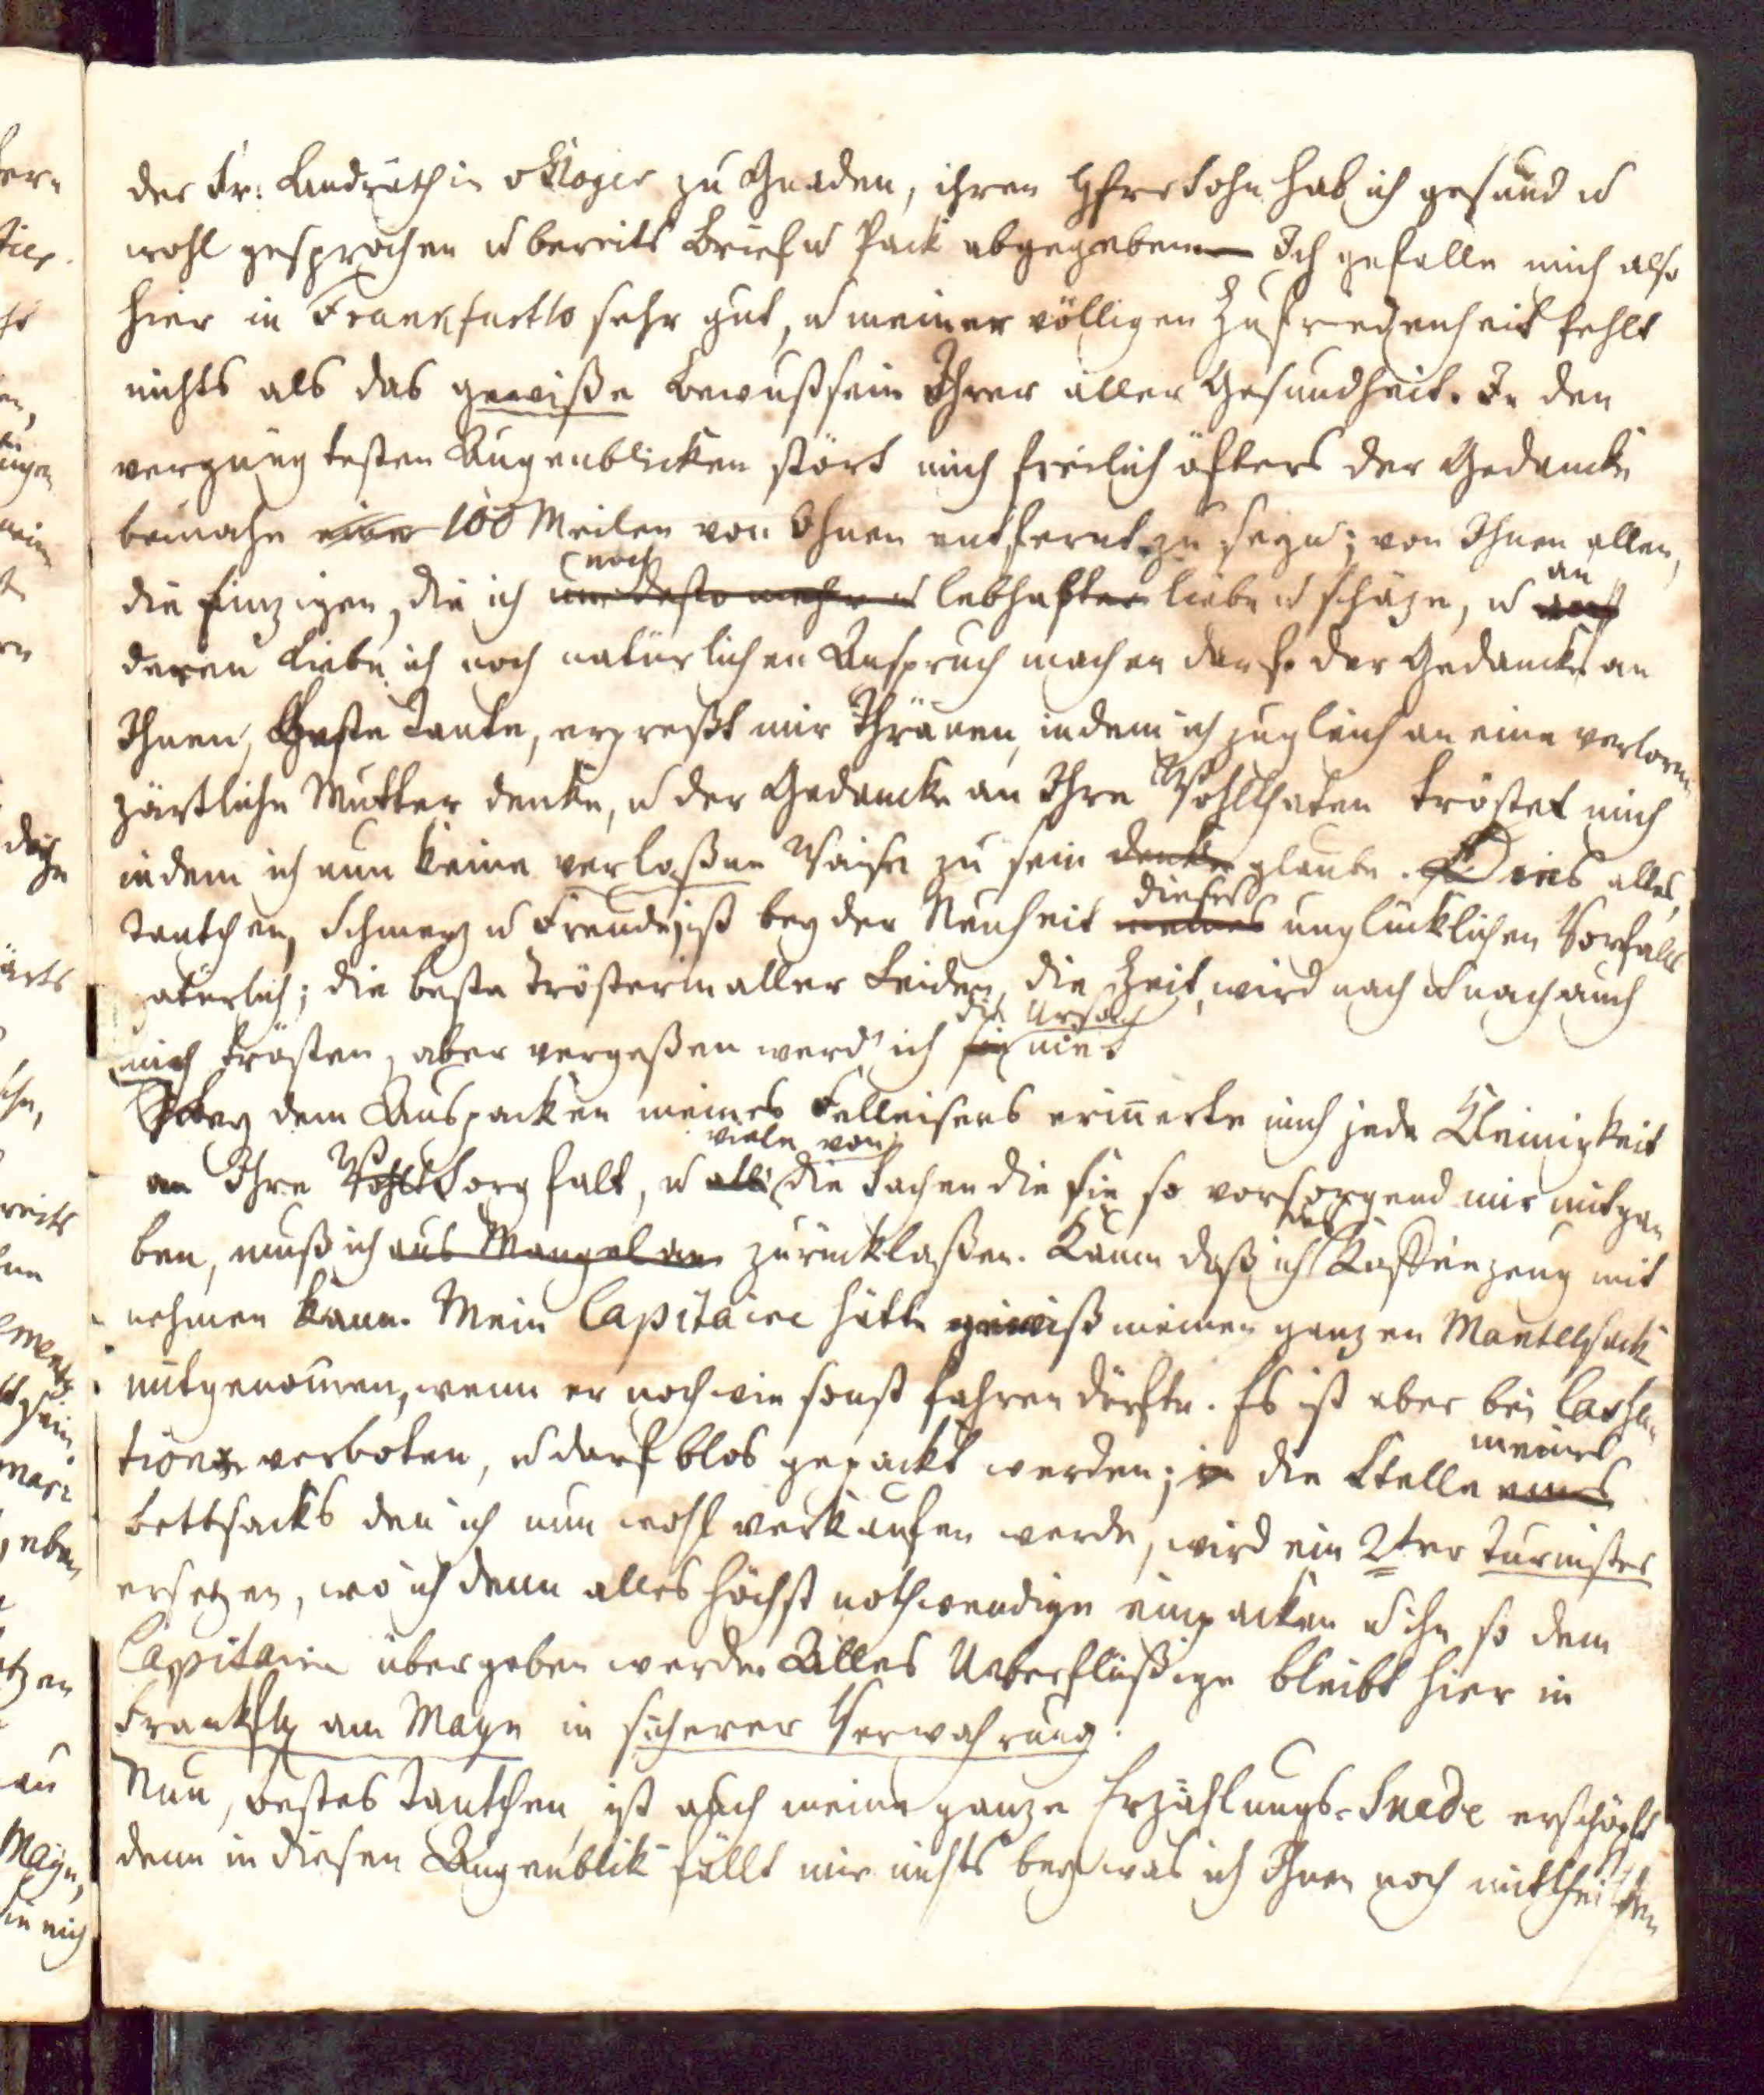 der Fr: Landräthin v Kloger zu Gnaden, ihren H Sohn hab ich gesund u
wohl gesprochen u bereits Brief u Pack abgegeben — Ich gefalle mich also
hier in Frankfurth sehr gut, u meiner völligen Zufriedenheit fehlt
nichts als das gewiße Bewußsein Ihrer aller Gesundheit. In den
vergnügtesten Augenblicken stört mich freilich öfters der Gedancke
beinahe 100 Meilen von Ihnen entfernt zu seyn; von Ihnen allen,
die einzigen, die ich noch um desto mehr u lebhafter liebe u schäze, u an auf
deren Liebe ich noch natürlichen Anspruch machen darf. der Gedancke an
Ihnen, Beste Tante, erpreßt mir Thränen, indem ich zugleich an eine verlorne
zärtliche Mutter denke, u der Gedancke an Ihre Wohlthaten tröstet mich
indem ich nun keine verlaßne Waise zu sein denke glaube. Dies alles,
Tantchen, Schmerz u Freude, ist bey der Neuheit dieses meines unglücklichen Vorfalls
natürlich; die beste Trösterin aller Leiden, die Zeit, wird nach u nach auch
mich trösten, aber vergeßen werd' ich die Ursach sie nie.
Bey dem Auspacken meines Felleisens erinnerte mich jede Kleinigkeit
an Ihre Wohl Sorgfalt, u alle viele von die Sachen die sie so vorsorgend mir mitga
ben, muß ich aus Mangel an zurücklaßen. Kaum daß ich das Kaffeezeug mit
nehmen kann. Mein Capitaine hätte gewiß meinen ganzen Mantelsack
mitgenommen, wenn er noch wie sonst fahren dürfte. Es ist aber bei Cassa
tion verboten, u darf blos gepackt werden; in die Stelle meines eines
Bettsacks den ich nun wohl verkaufen werde, wird ein 2ter Turnister
ersetzen, wo ich denn alles höchst nothwendige einpacken u ihn so dem
Capitaine übergeben werde. Alles Ueberflüßige bleibt hier in
Frankfth am Mayn in sicherer Verwahrung.
Nun, bestes Tantchen, ist auch meine ganze Erzählungs-Suade erschöpft
denn in diesen Augenblik fällt mir nichts bey was ich Ihnen noch mittheilen